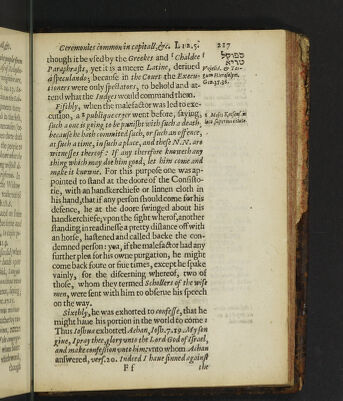 Ceremonies common in capitall, &c. LIB.5. 217
though it be vsed by the Greekes and Chaldee
Paraphrasts, yet it is a meere Latine, deriued
à speculando; because in the Court the Execu-
tioners were only spectators, to behold and at-
tend what the Iudges would command them.
Fifthly, when the malefactor was led to exe-
cution, a publique cryer went before, saying,
such a one is going to be punisht with such a death,
because he hath committed such, or such an offence,
at such a time, in such a place, and these N.N. are
witnesses thereof: If any therefore knoweth any
thing which may doe him good, let him come and
make it knowne. For this purpose one was ap-
pointed to stand at the doore of the Consisto-
rie, with an handkerchiefe or linnen cloth in
his hand, that if any person should come for his
defence, he at the doore swinged about his
handkerchiefe; vpon the sight wherof, another
standing in readinesse a pretty distance off with
an horse, hastened and called backe the con-
demned person: yea, if the malefactor had any
further plea for his owne purgation, he might
come back foure or fiue times, except he spake
vainly, for the discerning whereof, two of
those, whom they termed Schollers of the wise
men, were sent with him to obserue his speech
on the way.
Sixthly, he was exhorted to confesse, that he
might haue his portion in the world to come:
Thus Ioshua exhorted Achan, Iosh.7.19. My son
giue, I pray thee, glory vnto the Lord God of Israel,
and make confession vnto him: vnto whom Achan
answered, vers.20. Indeed I haue sinned against
F f the